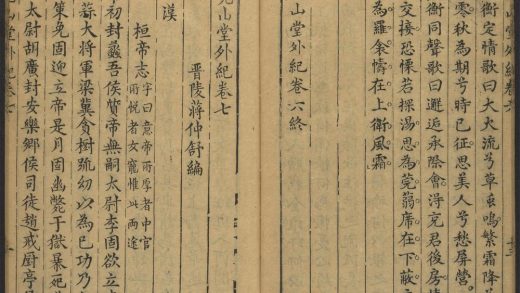 山堂外紀卷六
衡定情歌曰大火流兮草蟲鳴繁霜降
零秋為期兮時已征思美人兮愁屏營
衡同聲歌曰邂逅承際會淂充君後房情
交接恐慄若探湯思為莞蒻席在下蔽
為羅衾幬在上衛風霜
山堂外紀卷六終
山堂外紀卷七
晉陵蔣仲舒編
漢
桓帝志字曰意帝所厚者中官
所悅者女寵惟此兩途
初封蠡吾侯質帝無嗣太尉李固欲立
蒜大將軍梁冀貪樹疏幼以為己功乃
策免固迎立帝是月固幽斃于獄暴死
太尉胡廣封安樂鄉侯司徒趙戒厨亭
山堂外紀卷七